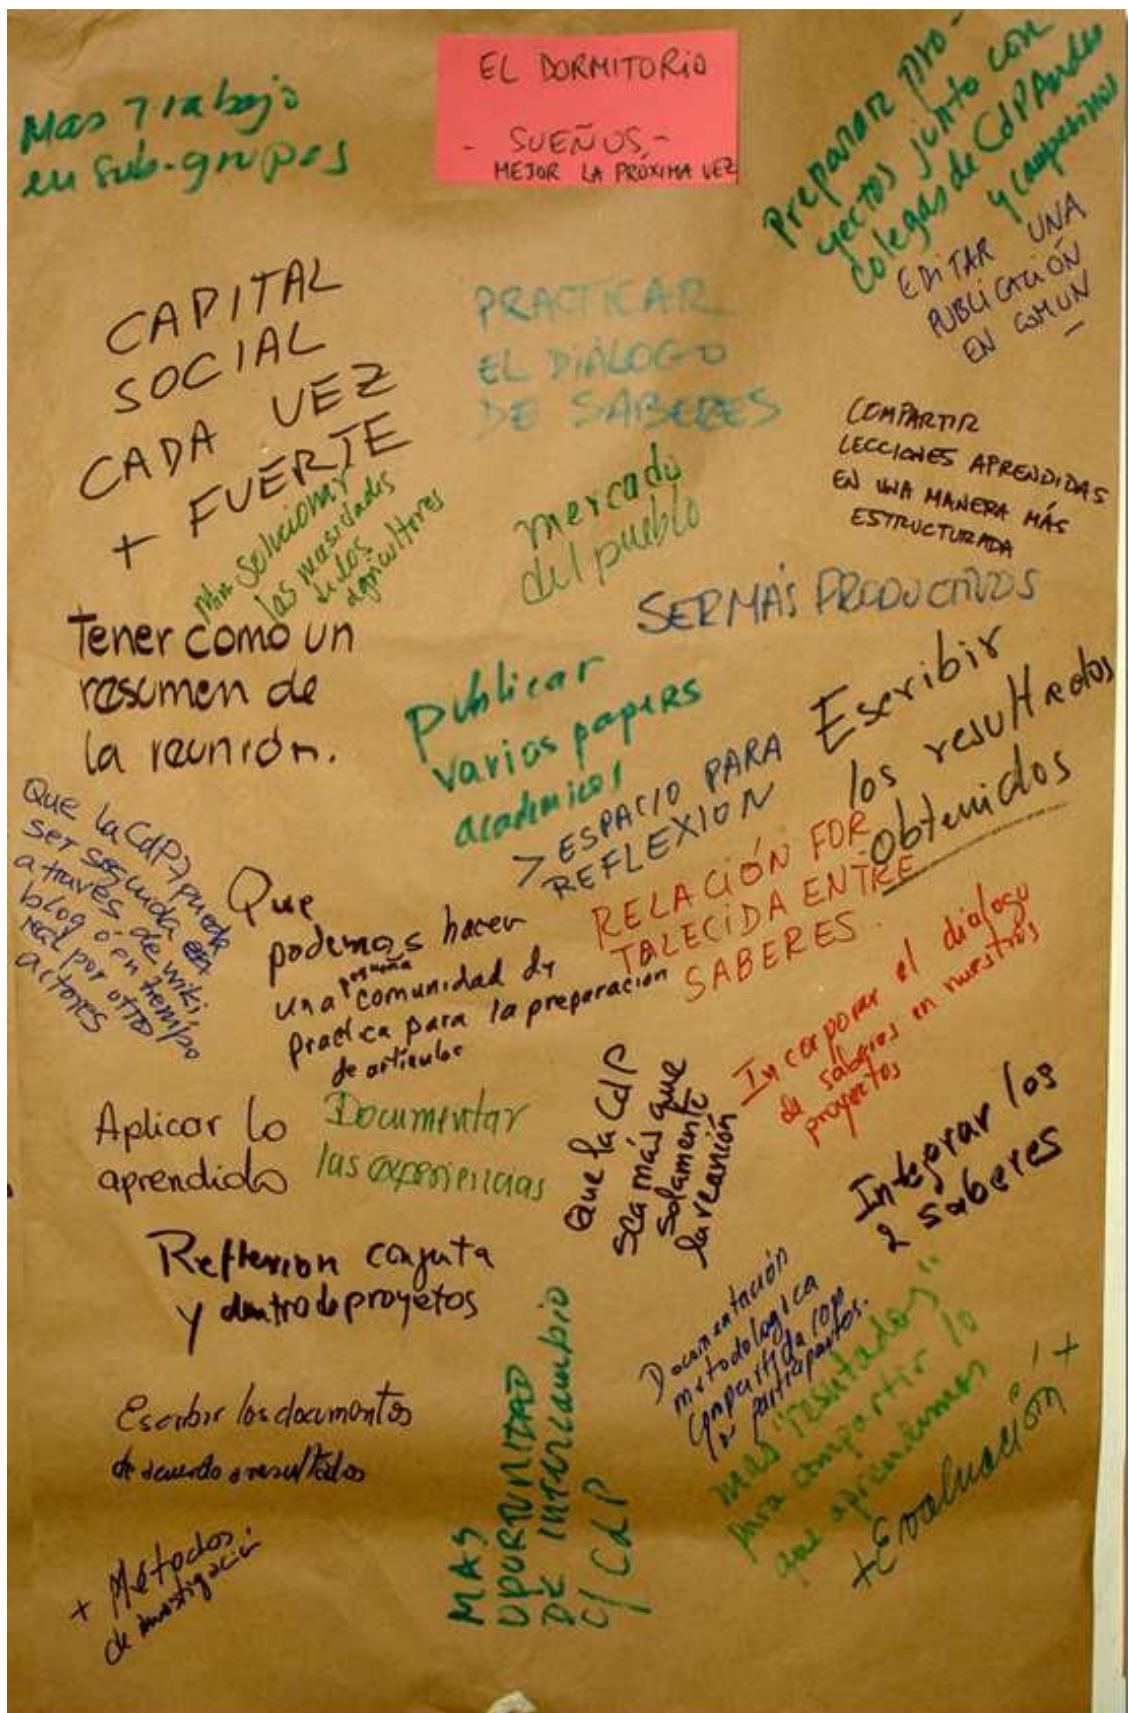 EL DORMITORIO
- SUEÑOS -
MEJOR LA PRÓXIMA VEZ
Mas Trabajo
en sub-grupos
Preparar pro-
yectos junto con
colegas de CdPAndes
y campesinos
EDITAR UNA
PUBLICACIÓN
EN COMUN
CAPITAL
SOCIAL
CADA VEZ
+ FUERTE
PRACTICAR
EL DIÁLOGO
DE SABERES
COMPARTIR
LECCIONES APRENDIDAS
EN UNA MANERA MÁS
ESTRUCTURADA
Solucionar
las
de los
agricultores
mercado
del pueblo
SER MÁS PRODUCTIVOS
Tener como un
resumen de
la reunión.
Publicar
varios papers
academicos
Escribir
los resultados
obtenidos
> ESPACIO PARA
REFLEXION
Que la CdP pueda
ser seguida
a través de wiki
blog o en tiempo
real por otro
actores
Que
podemos hacer
una pequeña comunidad de
practica para la preparación
de articulos
RELACIÓN FOR
TALECIDA ENTRE
SABERES.
Incorporar el dialogo
de saberes en nuestros
proyectos
Aplicar lo
aprendido
Documentar
las experiencias
Que la CdP
sea más que
solamente
la reunión
Integrar los
2 saberes
Reflexion conjuta
y dentro de proyetos
Documentación
metodologica
compartida con
participantes.
mas "resultados"
para compartir lo
que aprendemos
+ Evaluación +
Escribir los documentos
de acuerdo a resultados
MAS
OPORTUNIDAD
DE intercambio
c/ CdP
+ Métodos
de investigación